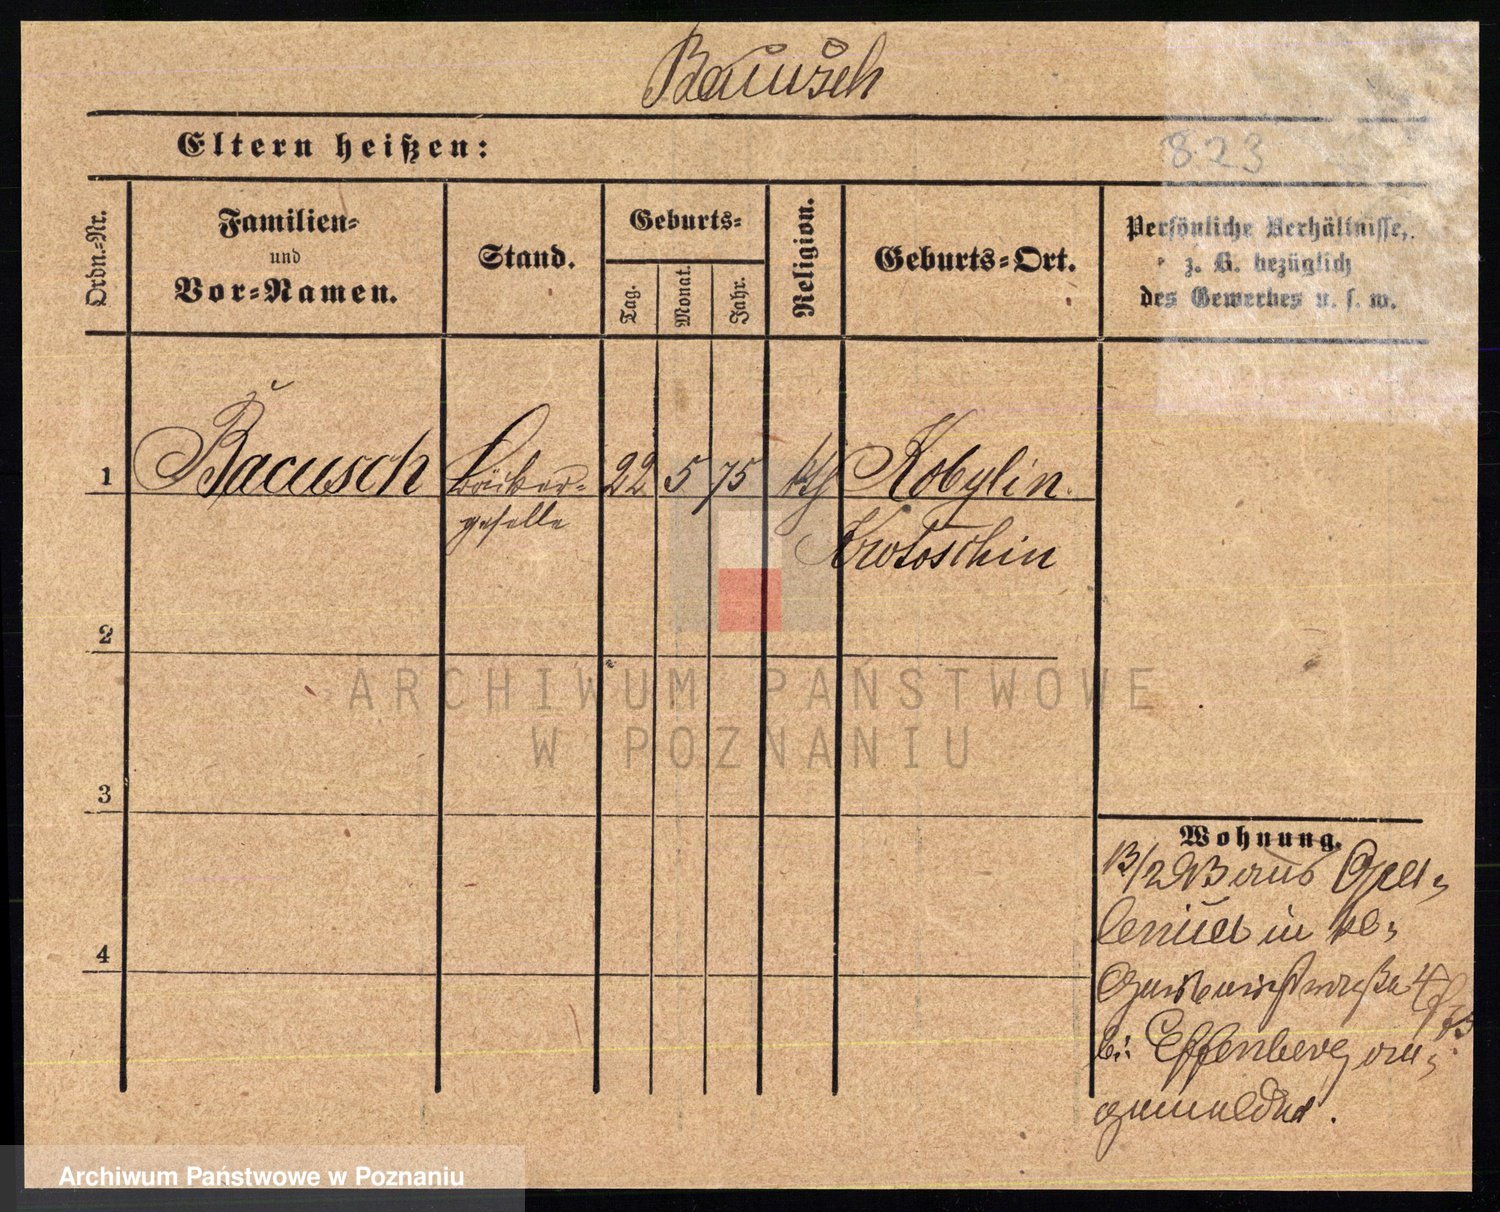 Bausch
823
Eltern heißen:
Ordn.-Nr.
Familien-
und
Vor-Namen.
Stand.
Geburts-
Tag.
Monat.
Jahr.
Religion.
Geburts-Ort.
Persönliche Verhältnisse,
z. B. bezüglich
des Gewerbes u. s. w.
1 Bacusch Bäcker- 22 5 75 kth Kobylin
geselle Krotoschin
2
3
4
Wohnung.
13/2 93 aus
in
4
bei Effenberg an-
gemeldet.
ARCHIWUM PAŃSTWOWE
W POZNANIU
Archiwum Państwowe w Poznaniu